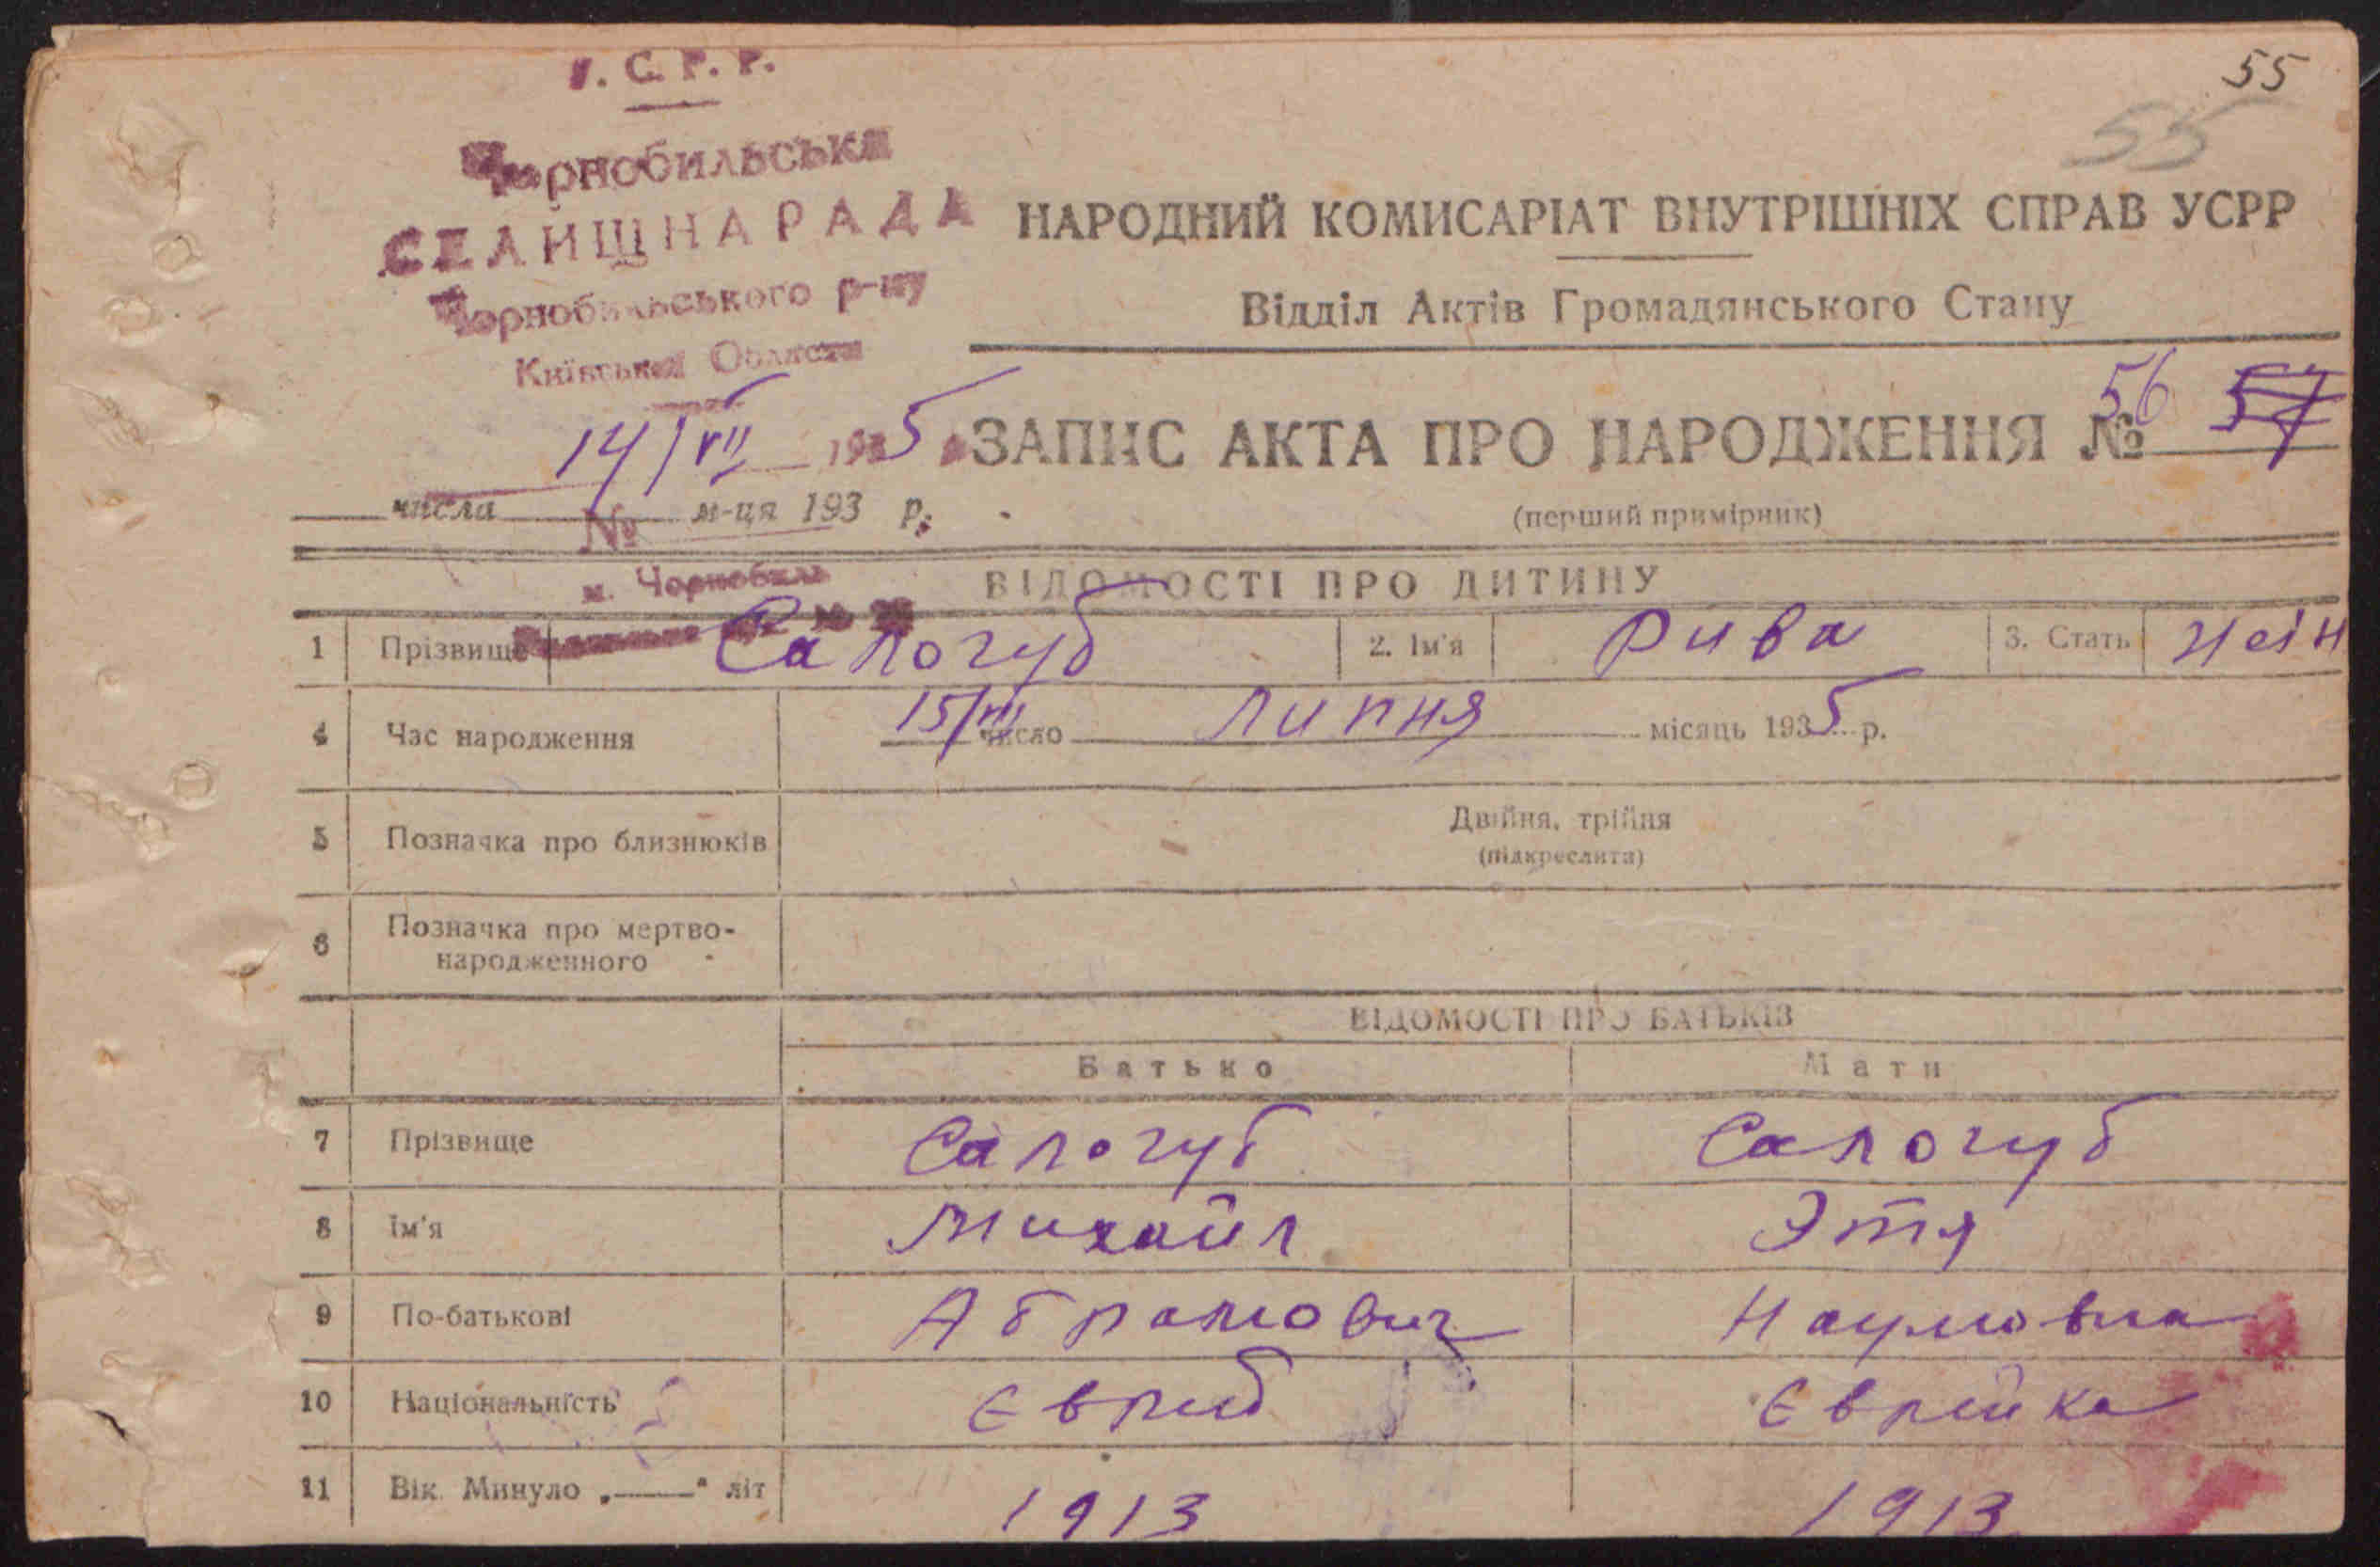 У. С. Р. Р.
55
55
Чорнобильська
СЕЛИЩНА РАДА
НАРОДНИЙ КОМИСАРІАТ ВНУТРІШНІХ СПРАВ УСРР
Чорнобильського р-ну
Відділ Актів Громадянського Стану
Київської Области
14/VII 1935
ЗАПИС АКТА ПРО НАРОДЖЕННЯ № 56 57
числа м-ця 193 р.
№
(перший примірник)
м. Чорнобиль
ВІДОМОСТІ ПРО ДИТИНУ
1 Прізвище Салогуб 2. Ім'я Рива 3. Стать
4 Час народження 15/VII число липня місяць 1935 р.
5 Позначка про близнюків Двійня, трійня
(підкреслити)
6 Позначка про мертво-
народженного
ВІДОМОСТІ ПРО БАТЬКІВ
Батько Мати
7 Прізвище Салогуб Салогуб
8 Ім'я Михайл Этя
9 По-батькові Абрамович Наумовна
10 Національність Єврей Єврейка
11 Вік. Минуло „——" літ 1913 1913